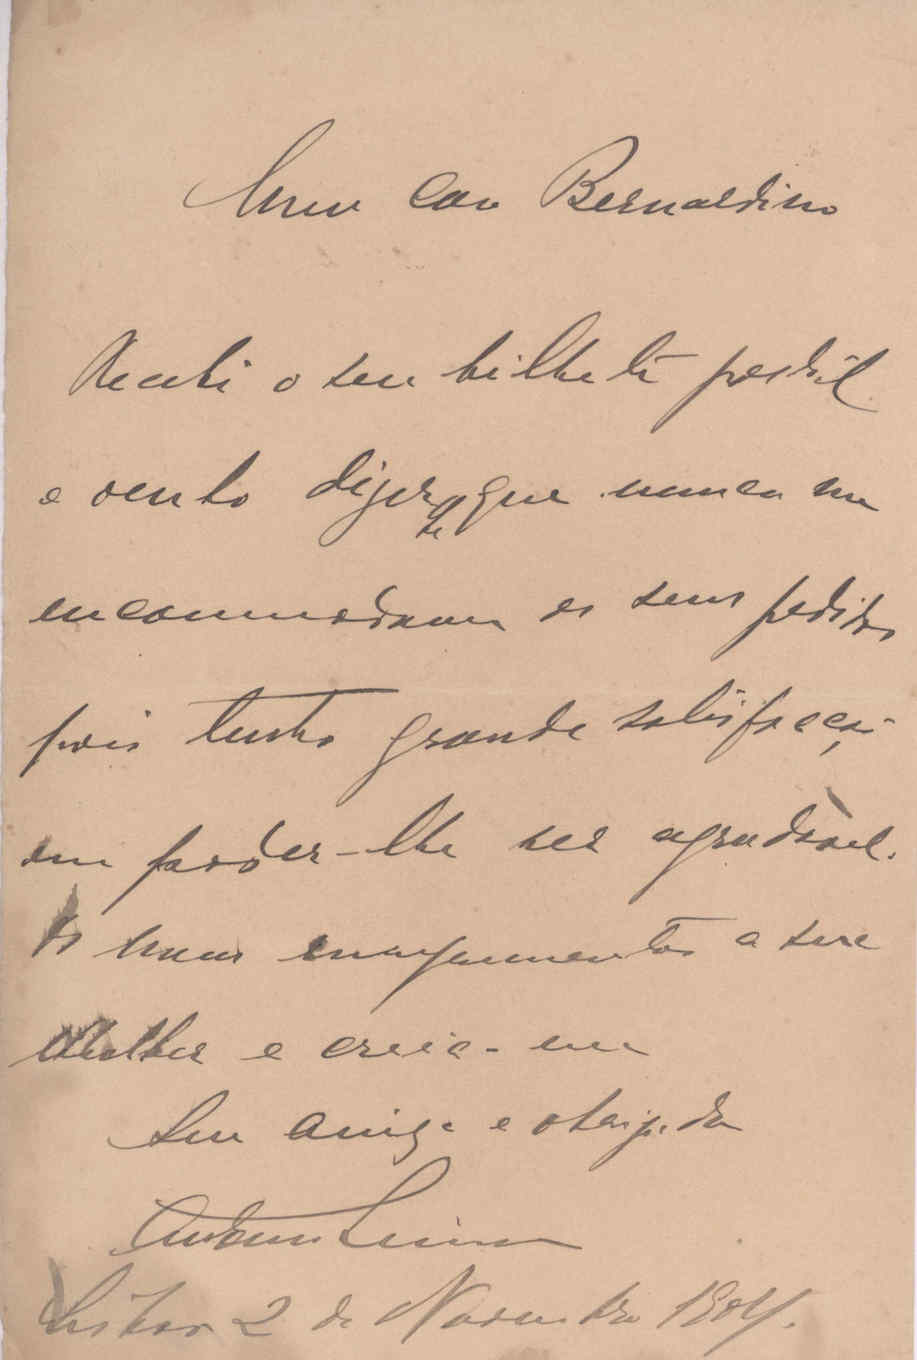 Meu caro Bernardino
Recebi o seu bilhete postal
e venho dizer-lhe que nunca me
encommodam os seus pedidos
pois tenho grande satisfação
em poder-lhe ser agradavel.
Os meus cumprimentos a sua
Mulher e creia-me
Seu amigo e obrigado
Antonio
Lisboa 2 de Novembro